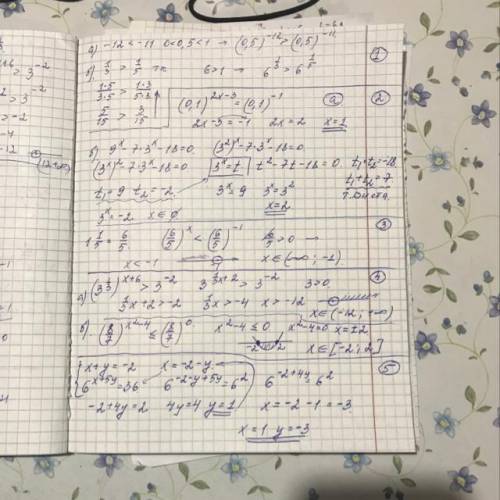 а) -12 < -11 0<0,5<1 → (0,5)^-12 > (0,5)^-11
1
б) 1/3 > 1/5 т.к 6>1 → 6^1/3 > 6^1/5
1·5/3·5 > 1·3/5·3
5/15 > 3/15
а 2
(0,1)^2x-3 = (0,1)^-1
2x-3=-1 2x=2 x=1
б) 9^x - 7·3^x - 18=0 (3²)^x - 7·3^x - 18=0
(3^x)² - 7·3^x - 18=0 3^x=t t²-7t-18=0 t₁·t₂=-18
t₁=9 t₂=-2 3^x=9 3^x=3² t₁+t₂=7
x=2 т.Виета
3^x=-2 x∈∅
3
1 1/5 = 6/5 (6/5)^x < (6/5)^-1 6/5>0 →
x<-1 -1 x∈(-∞;-1)
а) (3^1/3)^x+6 > 3^-2 3^1/3x+2 > 3^-2 3>0
1/3x+2>-2 1/3x>-4 x>-12
x∈(-12;+∞)
б) (8/7)^x²-4 ≤ (8/7)^0 x²-4≤0 x²-4=0 x=±2
-2 2 x∈[-2;2]
5
x+y=-2 x=-2-y
6^x+5y=36 6^-2-y+5y=6² 6^-2+4y=6²
-2+4y=2 4y=4 y=1 x=-2-1=-3
x=1 y=-3